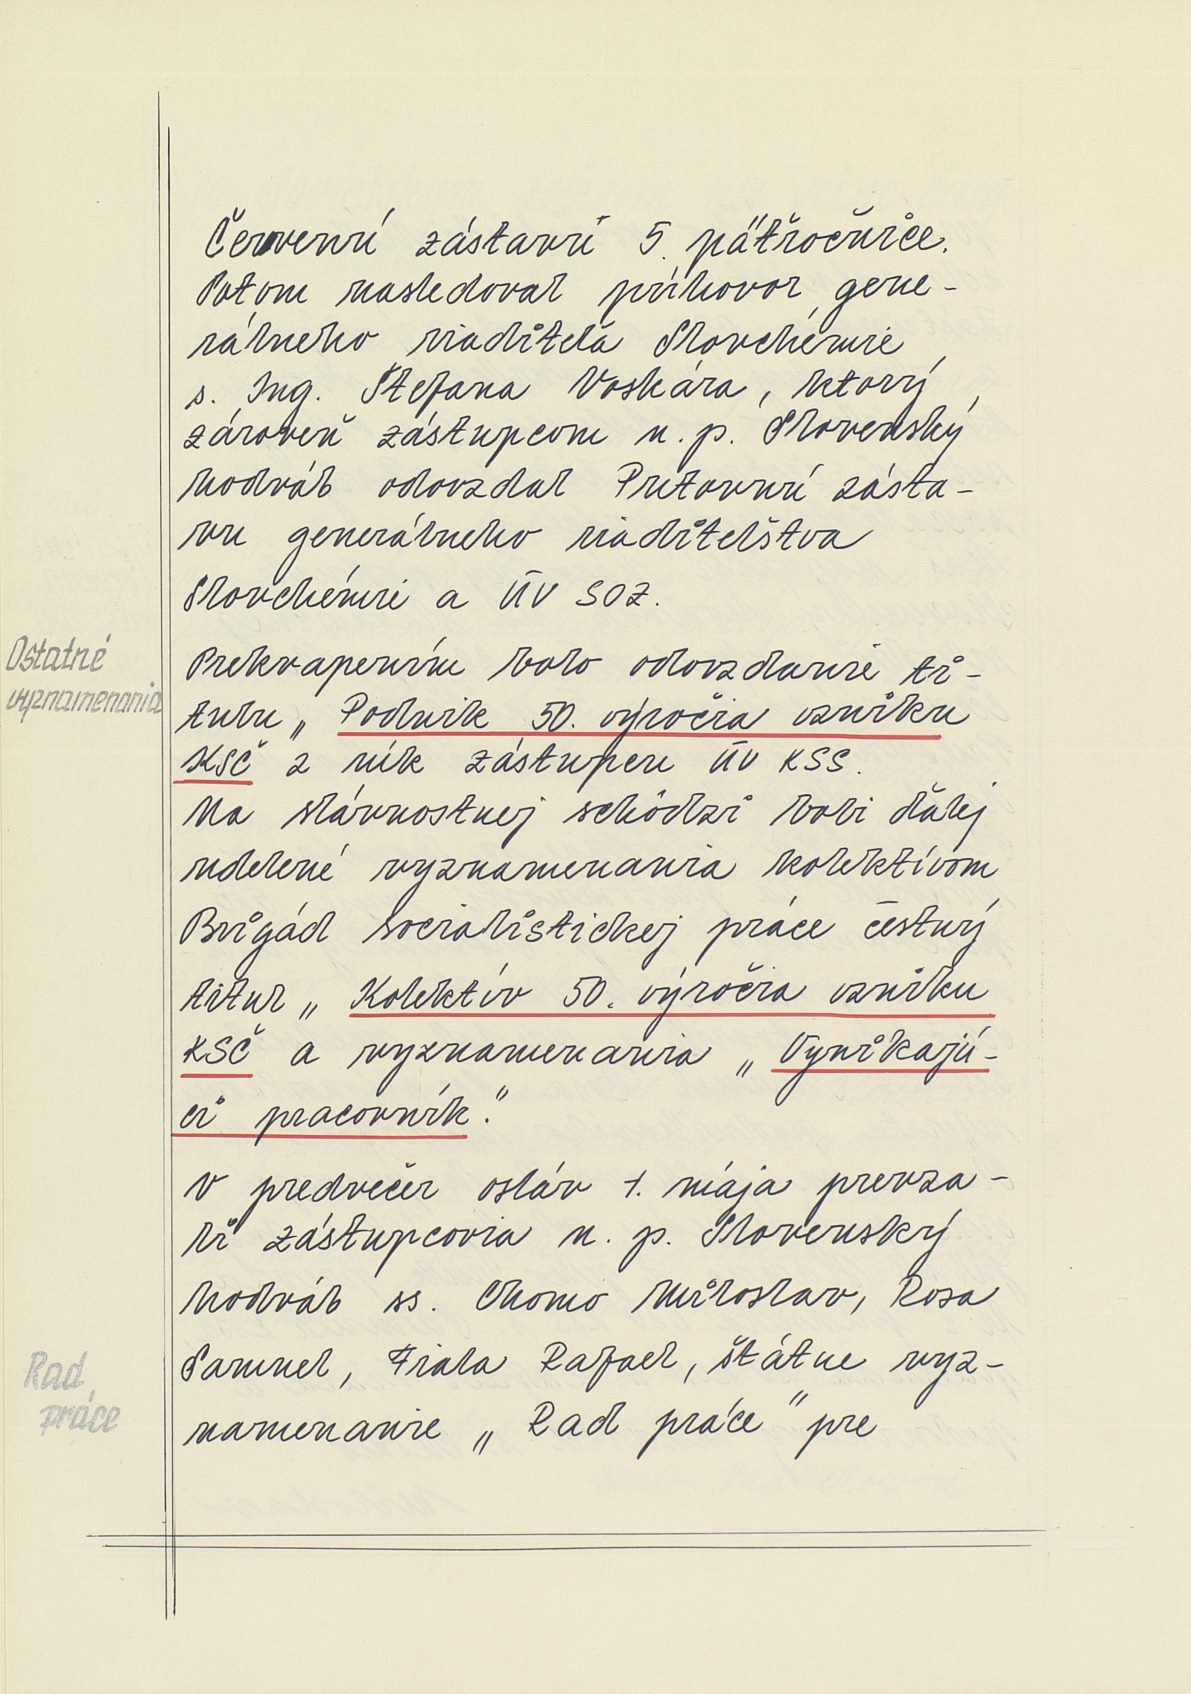 Červenú zástavu 5. päťročnice.
Potom nasledoval príhovor gene-
rálneho riaditeľa Slovchémie
s. Ing. Štefana Voskára, ktorý
zároveň zástupcom n. p. Slovenský
hodváb odovzdal Putovnú zásta-
vu generálneho riaditeľstva
Slovchémie a ÚV SOZ.
Ostatné
vyznamenania
Prekvapením bolo odovzdanie ti-
tulu „ Podnik 50. výročia vzniku
KSČ z rúk zástupcu ÚV KSS.
Na slávnostnej schôdzi boli ďalej
udelené vyznamenania kolektívom
Brigád socialistickej práce čestný
titul „ Kolektív 50. výročia vzniku
KSČ a vyznamenania „ Vynikajú-
ci pracovník."
V predvečer osláv 1. mája prevza-
li zástupcovia n. p. Slovenský
hodváb ss. Chomo Miloslav, Rosa
Samuel, Fiala Rafael, štátne vyz-
namenanie „ Rad práce " pre
Rad
práce